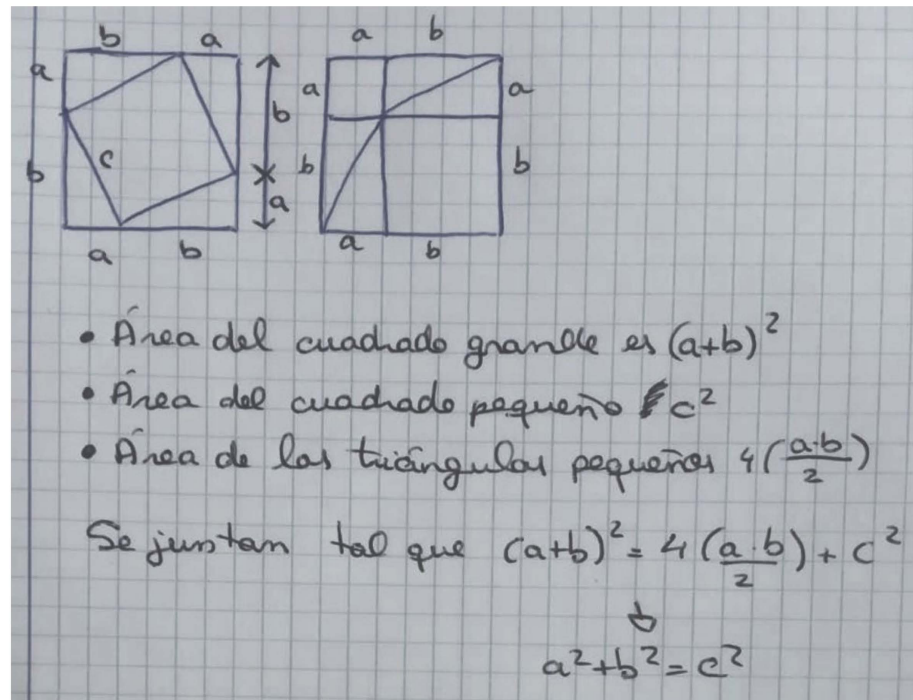 b a a b
a a a
b b b b
c
a
a b a b
• Área del cuadrado grande es (a+b)²
• Área del cuadrado pequeño c²
• Área de los triángulos pequeños 4(a·b/2)
Se juntan tal que (a+b)² = 4(a·b/2) + c²
a²+b²=c²